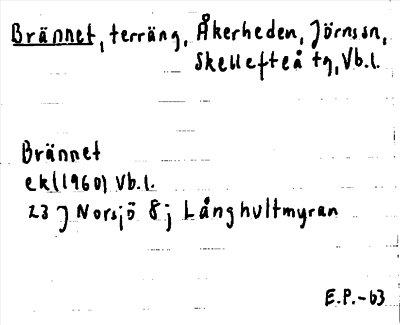 Brännet, terräng, Åkerheden, Jörns sn,
Skellefteå tg, Vb.l.
Brännet
ek (1960) Vb.l.
23 J Norsjö 8j Långhultmyran
E.P.-63